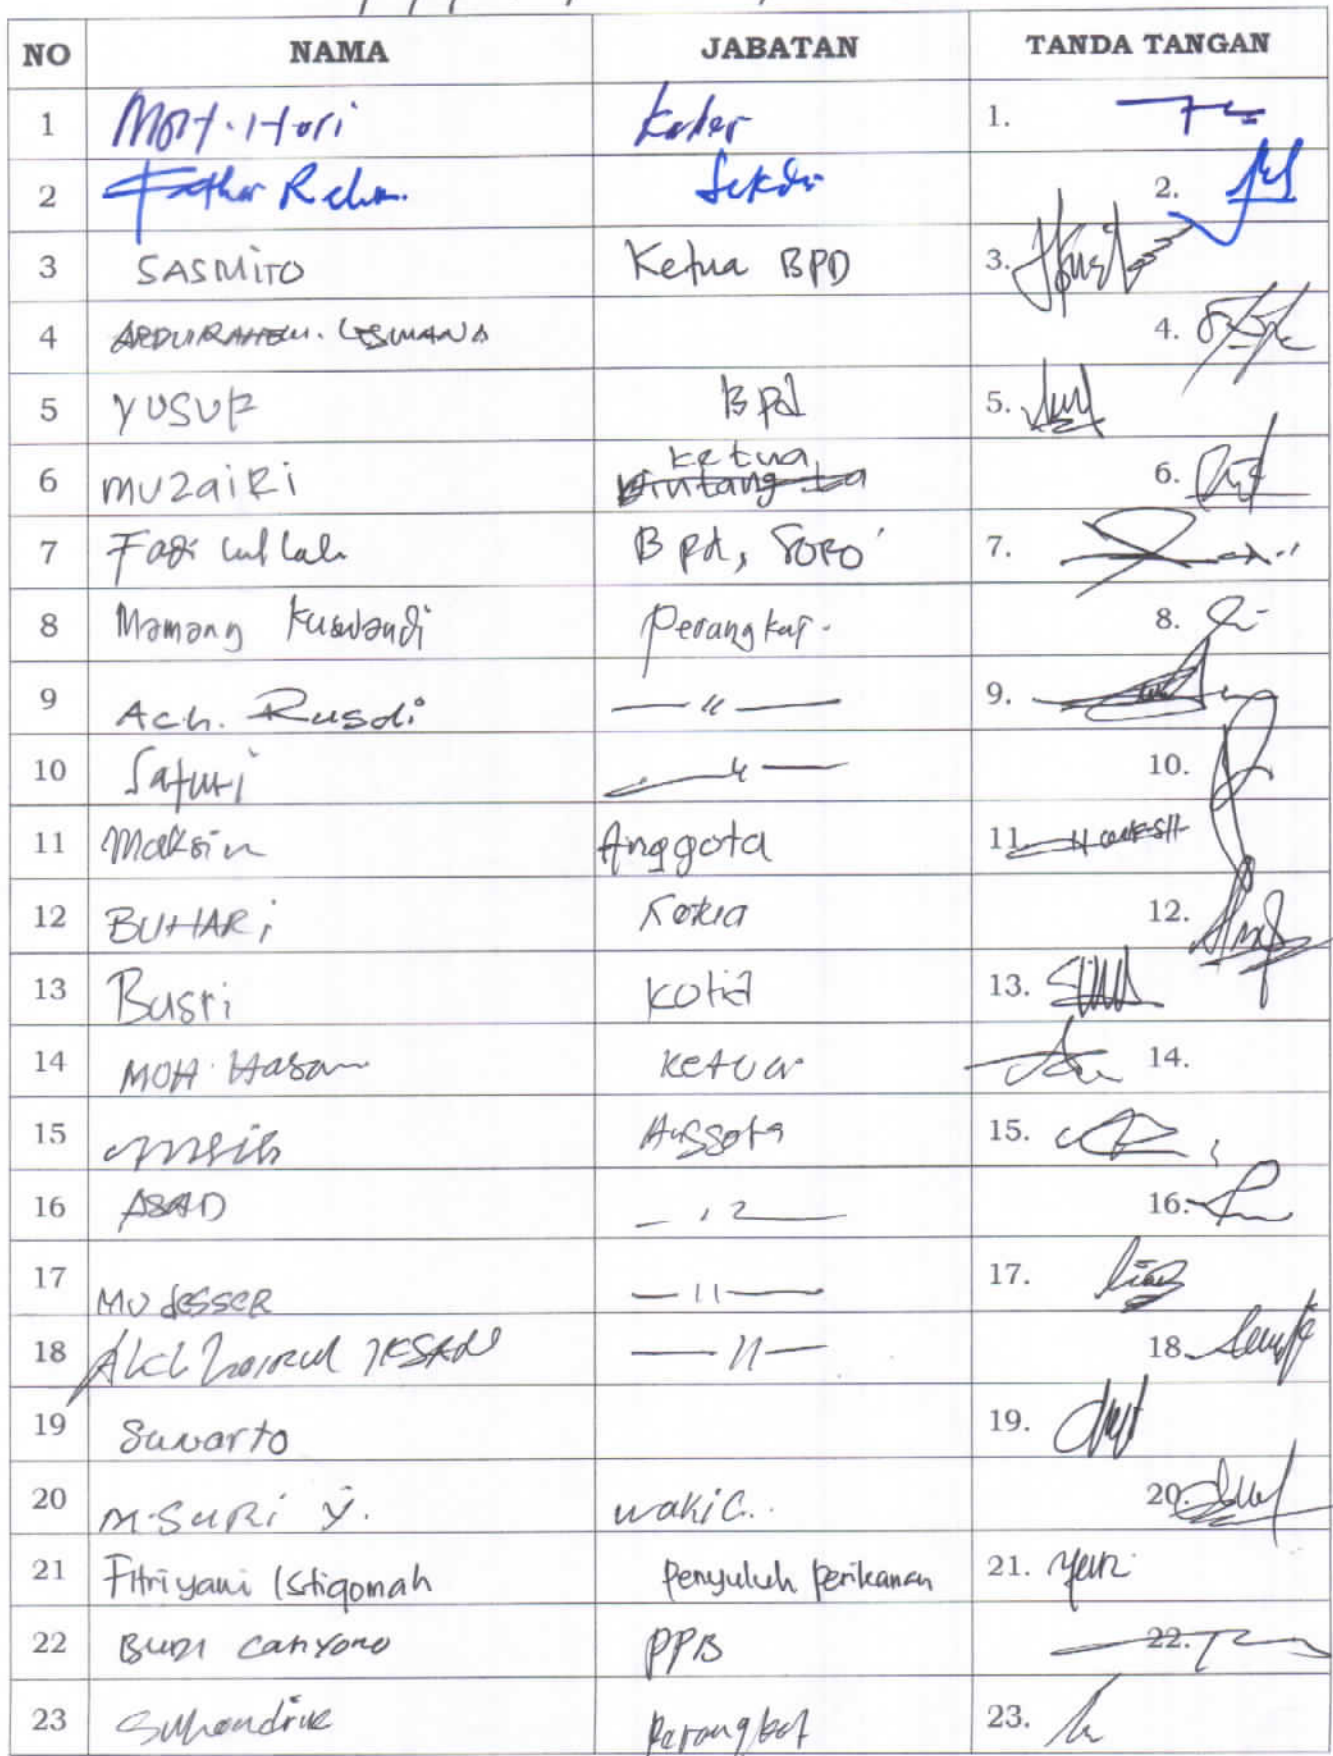 NO NAMA JABATAN TANDA TANGAN
1 MOH. Hori Kader 1.
2 Fathor Rehm. Sekdes 2.
3 SASMITO Ketua BPD 3.
4 ABDURAHEM. LESMANA 4.
5 YUSUF Bpd 5.
6 MUZAIRI ketua 6.
7 Bpd, SORO 7.
8 Mamang Kuswandi Perangkat. 8.
9 Ach. Rusdi — 〃 — 9.
10 Safuri — 〃 — 10.
11 Maksin Anggota 11.
12 BUHARI Ketua 12.
13 Busri 13.
14 MOH. Hasan Ketua 14.
15 Anggota 15.
16 ASAD 16.
17 MUDESSER — 11 — 17.
18 IKSAN — 11 — 18.
19 Suwarto 19.
20 M. SURI Y. wakil.. 20.
21 Fitriyani Istiqomah Penyuluh Perikanan 21. Yun
22 BUDI CAHYONO PPB 22.
23 Perangkat 23.